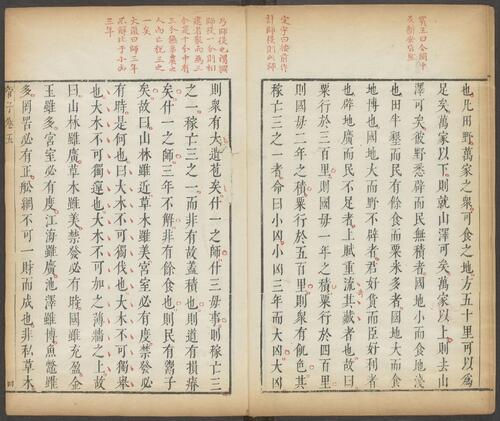 也凡田野萬家之眾可食之地方五十里可以為
足矣萬家以下則就山澤可矣萬家以上則去山
澤可矣彼野悉辟而民無積者國地小而食地淺
也田半墾而民有餘食而粟米多者國地大而食
地博也國地大而野不辟者君好貨而臣好利者
也辟地廣而民不足者上賦重流其藏者也故曰
粟行於三百里則國毋一年之積粟行於四百里
則國毋二年之積粟行於五百里則眾有飢色其
稼亡三之一者命曰小凶小凶三年而大凶大凶
曰按前作
計師役則此師
乃師役也
師役一分則相
連者數而為三
分是十分中有
三分無事農之
人而亡稼三之
一矣
大復曰師三年
不解比于小凶
三年
則眾有大遺苞矣什一之師什三毋事則稼亡三
之一稼亡三之一而非有故蓋積也則道有損瘠
矣什一之師三年不解非有餘食也則民有鬻子
矣故曰山林雖近草木雖美宮室必有度禁發必
有時是何也曰大木不可獨伐也大木不可獨舉
也大木不可獨運也大木不可加之薄牆之上故
曰山林雖廣草木雖美禁發必有時國雖充盈金
玉雖多宮室必有度江海雖廣池澤雖博魚鱉雖
多罔罟必有正船網不可一財而成也非私草木
管子卷五
四